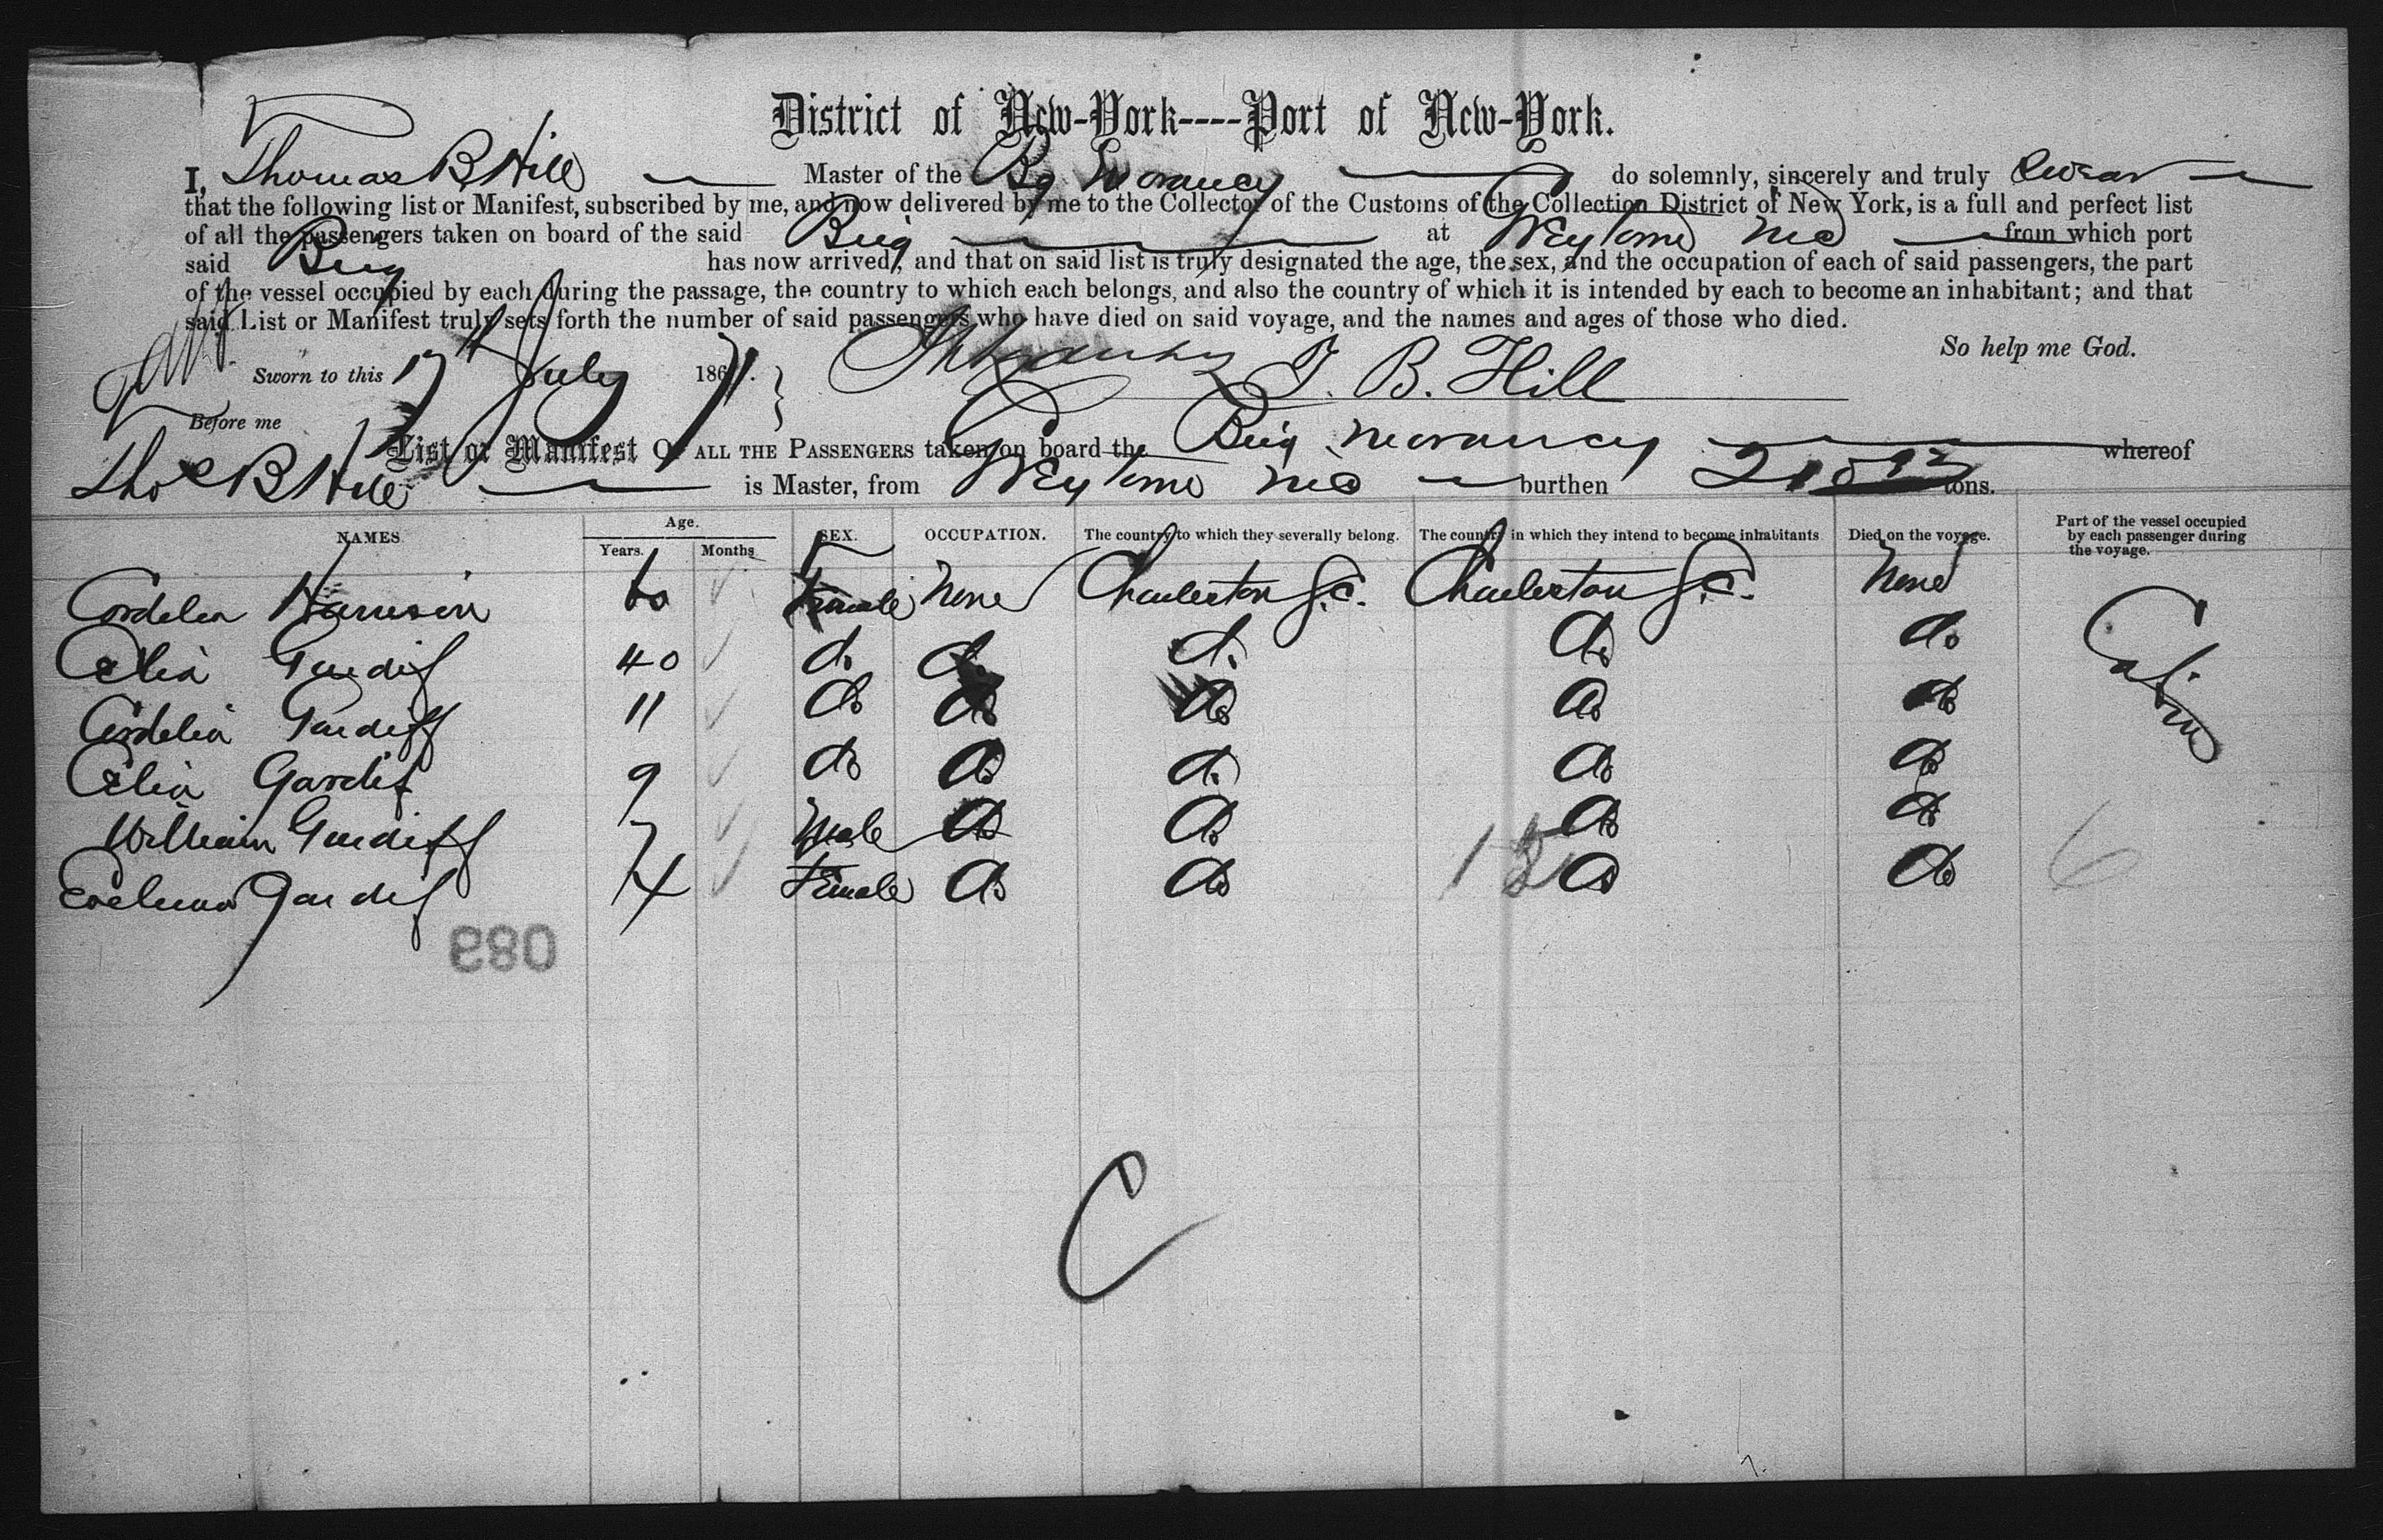 District of New-York----Port of New-York.
I, Thomas B. Hill Master of the Bg Morancy do solemnly, sincerely and truly swear
that the following list or Manifest, subscribed by me, and now delivered by me to the Collector of the Customs of the Collection District of New York, is a full and perfect list
of all the passengers taken on board of the said Brig at from which port
said Brig has now arrived; and that on said list is truly designated the age, the sex, and the occupation of each of said passengers, the part
of the vessel occupied by each during the passage, the country to which each belongs, and also the country of which it is intended by each to become an inhabitant; and that
said List or Manifest truly sets forth the number of said passengers who have died on said voyage, and the names and ages of those who died.
So help me God.
Sworn to this 17th July 1871. T. B. Hill
Before me
List or Manifest OF ALL THE PASSENGERS taken on board the Brig Morancy whereof
Thos B Hill is Master, from burthen tons.
NAMES. Age. Years. Months. SEX. OCCUPATION. The country to which they severally belong. The country in which they intend to become inhabitants Died on the voyage. Part of the vessel occupied by each passenger during the voyage.
Cordelia Harrison 60 Female None Charleston S.C. Charleston S.C. None Cabin
Celia Gurdif 40 do do do do do
Cordelia Gurdiff 11 do do do do do
Celia Gardif 9 do do do do do
William Gurdiff 7 Male do do do do
Gardif 4 Female do do do do
6
089
C